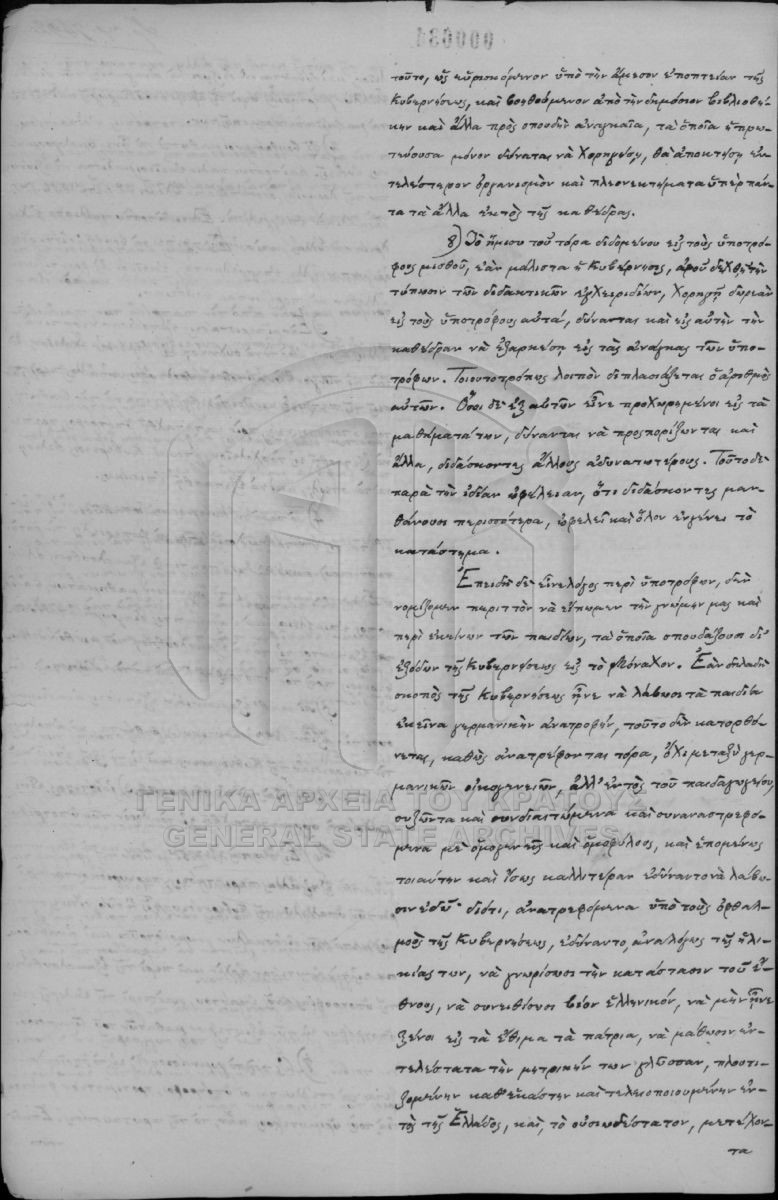 000031
τοῦτο, ὡς εὑρισκόμενον ὑπὸ τὴν ἄμεσον ἐποπτείαν τῆς
Κυβερνήσεως, καὶ βοηθούμενον ἀπὸ τὴν δημόσιον βιβλιοθή-
κην καὶ ἄλλα πρὸς σπουδὴν ἀναγκαῖα, τὰ ὁποῖα ἡ πρω-
τεύουσα μόνον δύναται νὰ χορηγήσῃ, θὰ ἀποκτήσῃ ἐν-
τελέστερον ὀργανισμὸν καὶ πλεονεκτήματα ὑπὲρ πάν-
τα τὰ ἄλλα ἐκτὸς τῆς καθέδρας.
8) Τὸ ἥμισυ τοῦ τόρα διδομένου εἰς τοὺς ὑποτρό-
φους μισθοῦ, ἐὰν μάλιστα ἡ Κυβέρνησις, ἀφοῦ δεχθῇ τὴν
τύπωσιν τῶν διδακτικῶν ἐγχειριδίων, χορηγῇ δωρεὰν
εἰς τοὺς ὑποτρόφους αὐτά, δύναται καὶ εἰς αὐτὴν τὴν
καθέδραν νὰ ἐξαρκέσῃ εἰς τὰς ἀνάγκας τῶν ὑπο-
τρόφων. Τοιουτοτρόπως λοιπὸν διπλασιάζεται ὁ ἀριθμὸς
αὐτῶν. Ὅσοι δὲ ἐξ αὐτῶν εἶνε προχωρημένοι εἰς τὰ
μαθήματά των, δύνανται νὰ προσπορίζωνται καὶ
ἄλλα, διδάσκοντες ἄλλους ἀδυνατωτέρους. Τοῦτο δὲ
παρὰ τὴν ἰδίαν ὠφέλειαν, ὅτι διδάσκοντες μαν-
θάνουσι περισσότερα, ὠφελεῖ καὶ ὅλον ἐνγένει τὸ
κατάστημα.
Ἐπειδὴ δὲ εἶνε λόγος περὶ ὑποτρόφων, δὲν
νομίζομεν περιττὸν νὰ εἴπωμεν τὴν γνώμην μας καὶ
περὶ ἐκείνων τῶν παιδίων, τὰ ὁποῖα σπουδάζουν δι'
ἐξόδων τῆς Κυβερνήσεως εἰς τὸ Μόναχον. Ἐὰν δηλαδὴ
σκοπὸς τῆς Κυβερνήσεως ἦνε νὰ λάβωσι τὰ παιδία
ἐκεῖνα γερμανικὴν ἀνατροφήν, τοῦτο δὲν κατορθό-
νεται, καθὼς ἀνατρέφονται τόρα, ὄχι μεταξὺ γερ-
μανικῶν οἰκογενειῶν, ἀλλ' ἐντὸς τοῦ παιδαγωγείου,
συζῶντα καὶ συνδιαιτώμενα καὶ συναναστρεφό-
μενα με ὁμογενεῖς καὶ ὁμοφύλους, καὶ ἑπομένως
τοιαύτην καὶ ἴσως καλλιτέραν ἐδύναντο νὰ λάβω-
σιν ἐδῶ· διότι, ἀνατρεφόμενα ὑπὸ τοὺς ὀφθαλ-
μοὺς τῆς Κυβερνήσεως, ἐδύναντο, ἀναλόγως τῆς ἡλι-
κίας των, νὰ γνωρίσωσι τὴν κατάστασιν τοῦ ἔ-
θνους, νὰ συνειθίσωσι βίον ἑλληνικόν, νὰ μὴν ἦνε
ξένοι εἰς τὰ ἔθιμα τὰ πάτρια, νὰ μάθωσιν ἐν-
τελέστατα τὴν μητρικήν των γλῶσσαν, πλουτι-
ζομένην καθ' ἑκάστην καὶ τελειοποιουμένην ἐν-
τὸς τῆς Ἑλλάδος, καὶ, τὸ οὐσιωδέστατον, μετέχον-
τα
ΓΕΝΙΚΑ ΑΡΧΕΙΑ ΤΟΥ ΚΡΑΤΟΥΣ
GENERAL STATE ARCHIVES